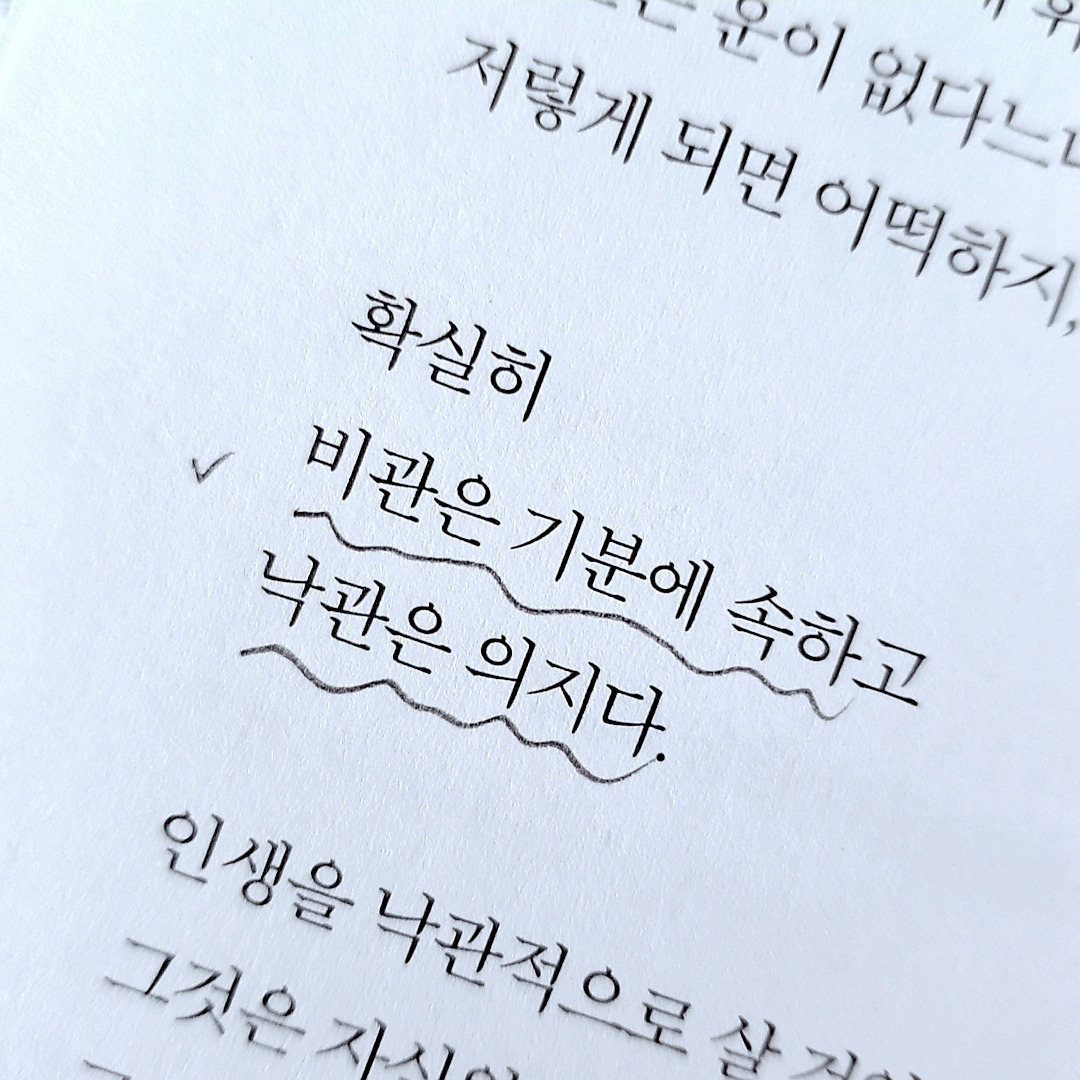 운이 없다느니
저렇게 되면 어떡하지,
확실히
비관은 기분에 속하고
낙관은 의지다.
인생을 낙관적으로 살
그것은